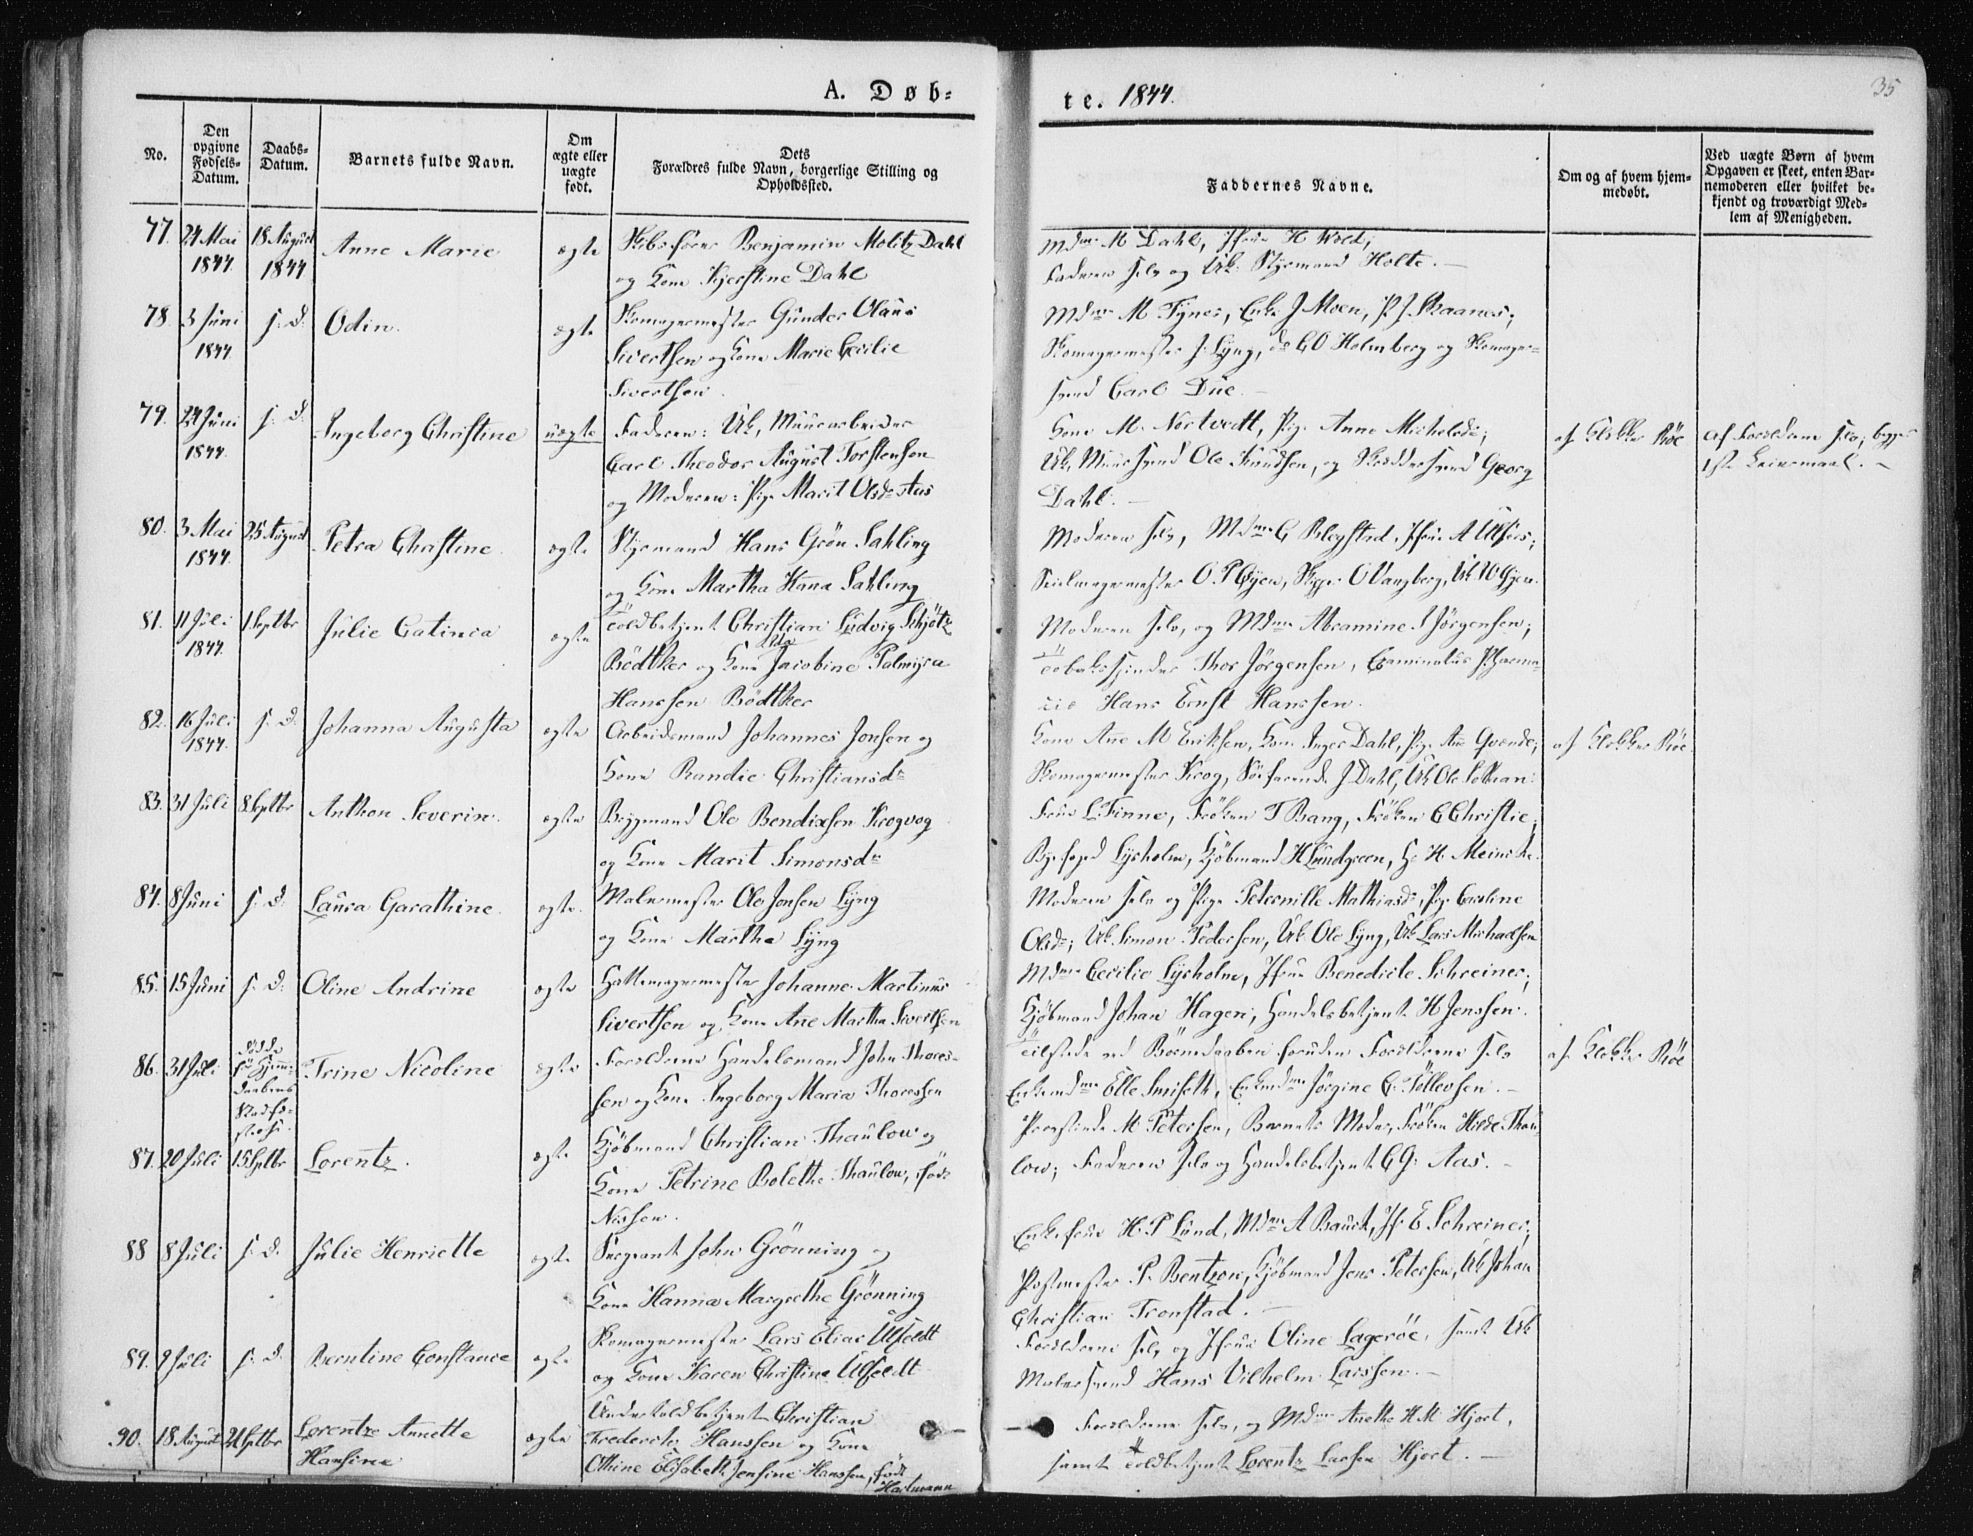 A. Døb=
te. 1844.
35
No.
Den opgivne Fødsels-Datum.
Daabs-Datum.
Barnets fulde Navn.
Om ægte eller uægte født.
Dets Forældres fulde Navn, borgerlige Stilling og Opholdssted.
Faddernes Navne.
Om og af hvem hjem-medøbt.
Ved uægte Børn af hvem Opgaven er skeet, enten Bar-nemoderen eller hvilket be-kjendt og troværdigt Med-lem af Menigheden.
77. 24 Mai 1844 18 August 1844 Anne Marie ægte Skibsfører Benjamin Moltz Dahl
og Kone Kjerstine Dahl
Mdme M Dahl, Jfrue H Wold;
Faderen selv og Uk. Styrmand Holte.
78. 3 Juni 1844 s. d. Odin. ægte Skomagermester Gunder Olaus
Sivertsen og Kone Marie Cecilie
Sivertsen.
Mdme M Tynes, Enke J Moen, P J Skaanes;
Skomagermester J. Lyng, do C O Holmberg og Skomager-
svend Carl Due.
79. 24 Juni 1844. s. d. Ingeborg Christine uægte Faderen: Uk, Muurarbeider
Carl Theodor August Torstensen
og Moderen: Pige Marit Olsdr Aus
Kone M. Nortvedt, Pige Anne Michelsdr;
Uk. Muursvend Ole Knudsen, og Skreddersvend Georg
Dahl.
af Klokker Röe
af Forældrene selv; begges
1ste Leiermaal.
80. 3 Mai 1844. 25 August Petra Christine ægte Styrmand Hans Grön Sahling
og Kone Martha Hanna Sahling
Moderen selv, Mdme C Blegstad, Jfrue A
Seilmagermester O. P Öyen, Skipper O Vangberg, Uk. W Öyen.
81. 11 Juli 1844. 1 Septbr Julie Catinca ægte Toldbetjent Christian Ludvig Schjötz
Bödtker og Kone Jacobine Palmyra
Hanssen Bödtker
Moderen selv, og Mdme Abramine S Jörgensen;
Tobaksspinder Thor Jörgensen, Examinatus Pharma-
cie Hans Ernst Hanssen.
82. 16 Juli 1844. s. d. Johanna Augusta ægte Arbeidsmand Johannes Jonsen og
Kone Randie Christiansdr
Kone Ane M Eriksen, Kone Inger Dahl, Pige Ane Qvande;
Skomagermester Krog, Söfarende J Dahl, Uk Ole
af Klokker Röe
83. 31 Juli 8 Septbr Anthon Severin. ægte Brygmand Ole Bendixsen Krogvog
og Kone Marit Simonsdr
Frue L. Finne, Fröken T Bang, Fröken C Christie;
Byefoged Lysholm, Kjöbmand H Lundgreen, Hr H. Meincke.
84. 8 Juni s. d. Laura Garathine. ægte. Malermester Ole Jonsen Lyng
og Kone Martha Lyng
Moderen selv og Pige Peternille Mathiasdr, Pige Caroline
Olsdr; Uk Simon Pedersen, Uk Ole Lyng, Uk Lars Michaelsen
85. 15 Juni s. d. Oline Andrine ægte Hattemagermester Johannes Martinus
Sivertsen og Kone Ane Martha Sivertsen
Mdme Cecilie Lysholm, Jfrue Benedicte Schreiner;
Kjöbmand Johan Hagen, Handelsbetjent H Jenssen.
86. 31 Juli Döde för Hjemmedaabens Stadfæstelse. Trine Nicoline ægte Forældrene Handelsmand John Thores-
sen og Kone Ingeborg Maria Thoressen
Tilstede ved Börnedaaben foruden Forældrene selv
Enkemdme Elle Smiseth, Enkemdme Jörgine C. Tollevsen.
af Klokker Röe
87. 20 Juli 15 Septbr Lorentz. ægte Kjöbmand Christian Thaulow og
Kone Petrine Bolethe Thaulow, född
Nissen.
Provstinde M Petersen, Barnets Moder, Fröken Hilde Thau-
low; Faderen selv og Handelsbetjent C G. Aas.
88 8 Juli s. d. Julie Henriette ægte Sergeant John Grönning og
Kone Hanna Margrethe Grönning
Enkefrue H. P Lund, Mdme A Bauck, Jf. E Schreiner;
Postmester P. Bentzon, Kjöbmand Jens Petersen, Uk Johan
Christian Tronstad.
89. 9 Juli s. d. Berntine Constance ægte Skomagermester Lars Elias Ulfeldt
og Kone Karen Christine Ulfeldt
Forældrene selv og Jfrue Oline Lageröe, samt Uk
Malersvend Hans Vilhelm Larssen.
90. 18 August 21 Septbr Lorentze Annette Hansine ægte Undertoldbetjent Christian
Frederik Hanssen og Kone
Othine Elisabeth Jensine Hanssen, född
Hartmann
Forældrene selv, og Mdme Anethe H M Hjort,
samt Toldbetjent Lorentz Larsen Hjort.